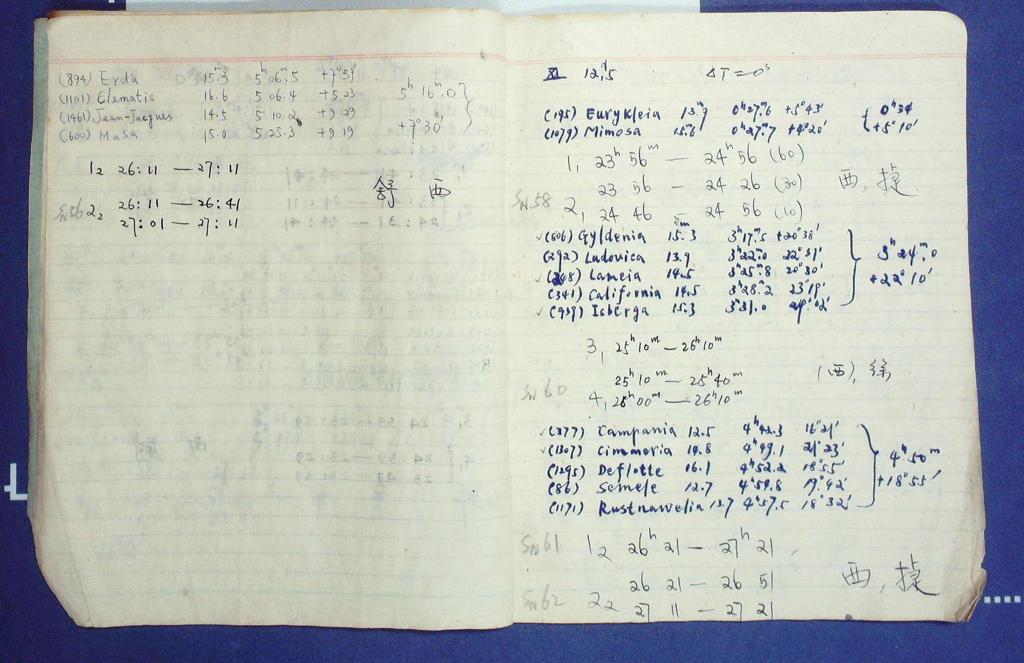 (894) Erda 15.3 5ʰ 06ᵐ.5 +7°51'
(1101) Clematis 16.6 5 06.4 +5 23
5ʰ 16ᵐ.0
(1461) Jean-Jacques 14.5 5 10.2 +9 29
(600) Musa 15.0 5 25.3 +9 19
+7°30'
1₂ 26:11 — 27:11
舒 西
SN56 2₂ 26:11 — 26:41
27:01 — 27:11
XI 12ᵈ.5 ΔT=0ˢ
(195) Eurykleia 13ᵐ.9 0ʰ27ᵐ.6 +5°43' 0ʰ34
(1079) Mimosa 15.6 0ʰ27.7 +4°20' +5°10'
1, 23ʰ 56ᵐ — 24ʰ 56 (60)
23 56 — 24 26 (30) 西, 捷
SN58 2, 24 46 — 24 56 (10)
(806) Gyldenia 15ᵐ.3 3ʰ17ᵐ.5 +20°38'
(292) Ludovica 13.9 3ʰ22ᵐ.0 22°31' 3ʰ 24ᵐ.0
(248) Lameia 14.5 3ʰ25ᵐ.8 20°30' +22°10'
(341) California 14.5 3ʰ28.2 23°18'
(939) Isberga 15.3 3ʰ31.0 24°02'
3, 25ʰ10ᵐ — 26ʰ10ᵐ
25ʰ10ᵐ — 25ʰ40ᵐ (西), 徐
SN60 4, 26ʰ00ᵐ — 26ʰ10ᵐ
(377) Campania 12.5 4ʰ42.3 16°21'
(1307) Cimmeria 14.8 4ʰ49.1 21°23' 4ʰ50ᵐ
(1295) Deflotte 16.1 4ʰ52.2 18°55'
(86) Semele 12.7 4ʰ59.8 19°42' +18°55'
(1171) Rustnawelia 13.7 4ʰ57.5 18°32'
SN61 1₂ 26ʰ 21 — 27ʰ 21
26 21 — 26 51 西, 捷
SN62 2₂ 27 11 — 27 21